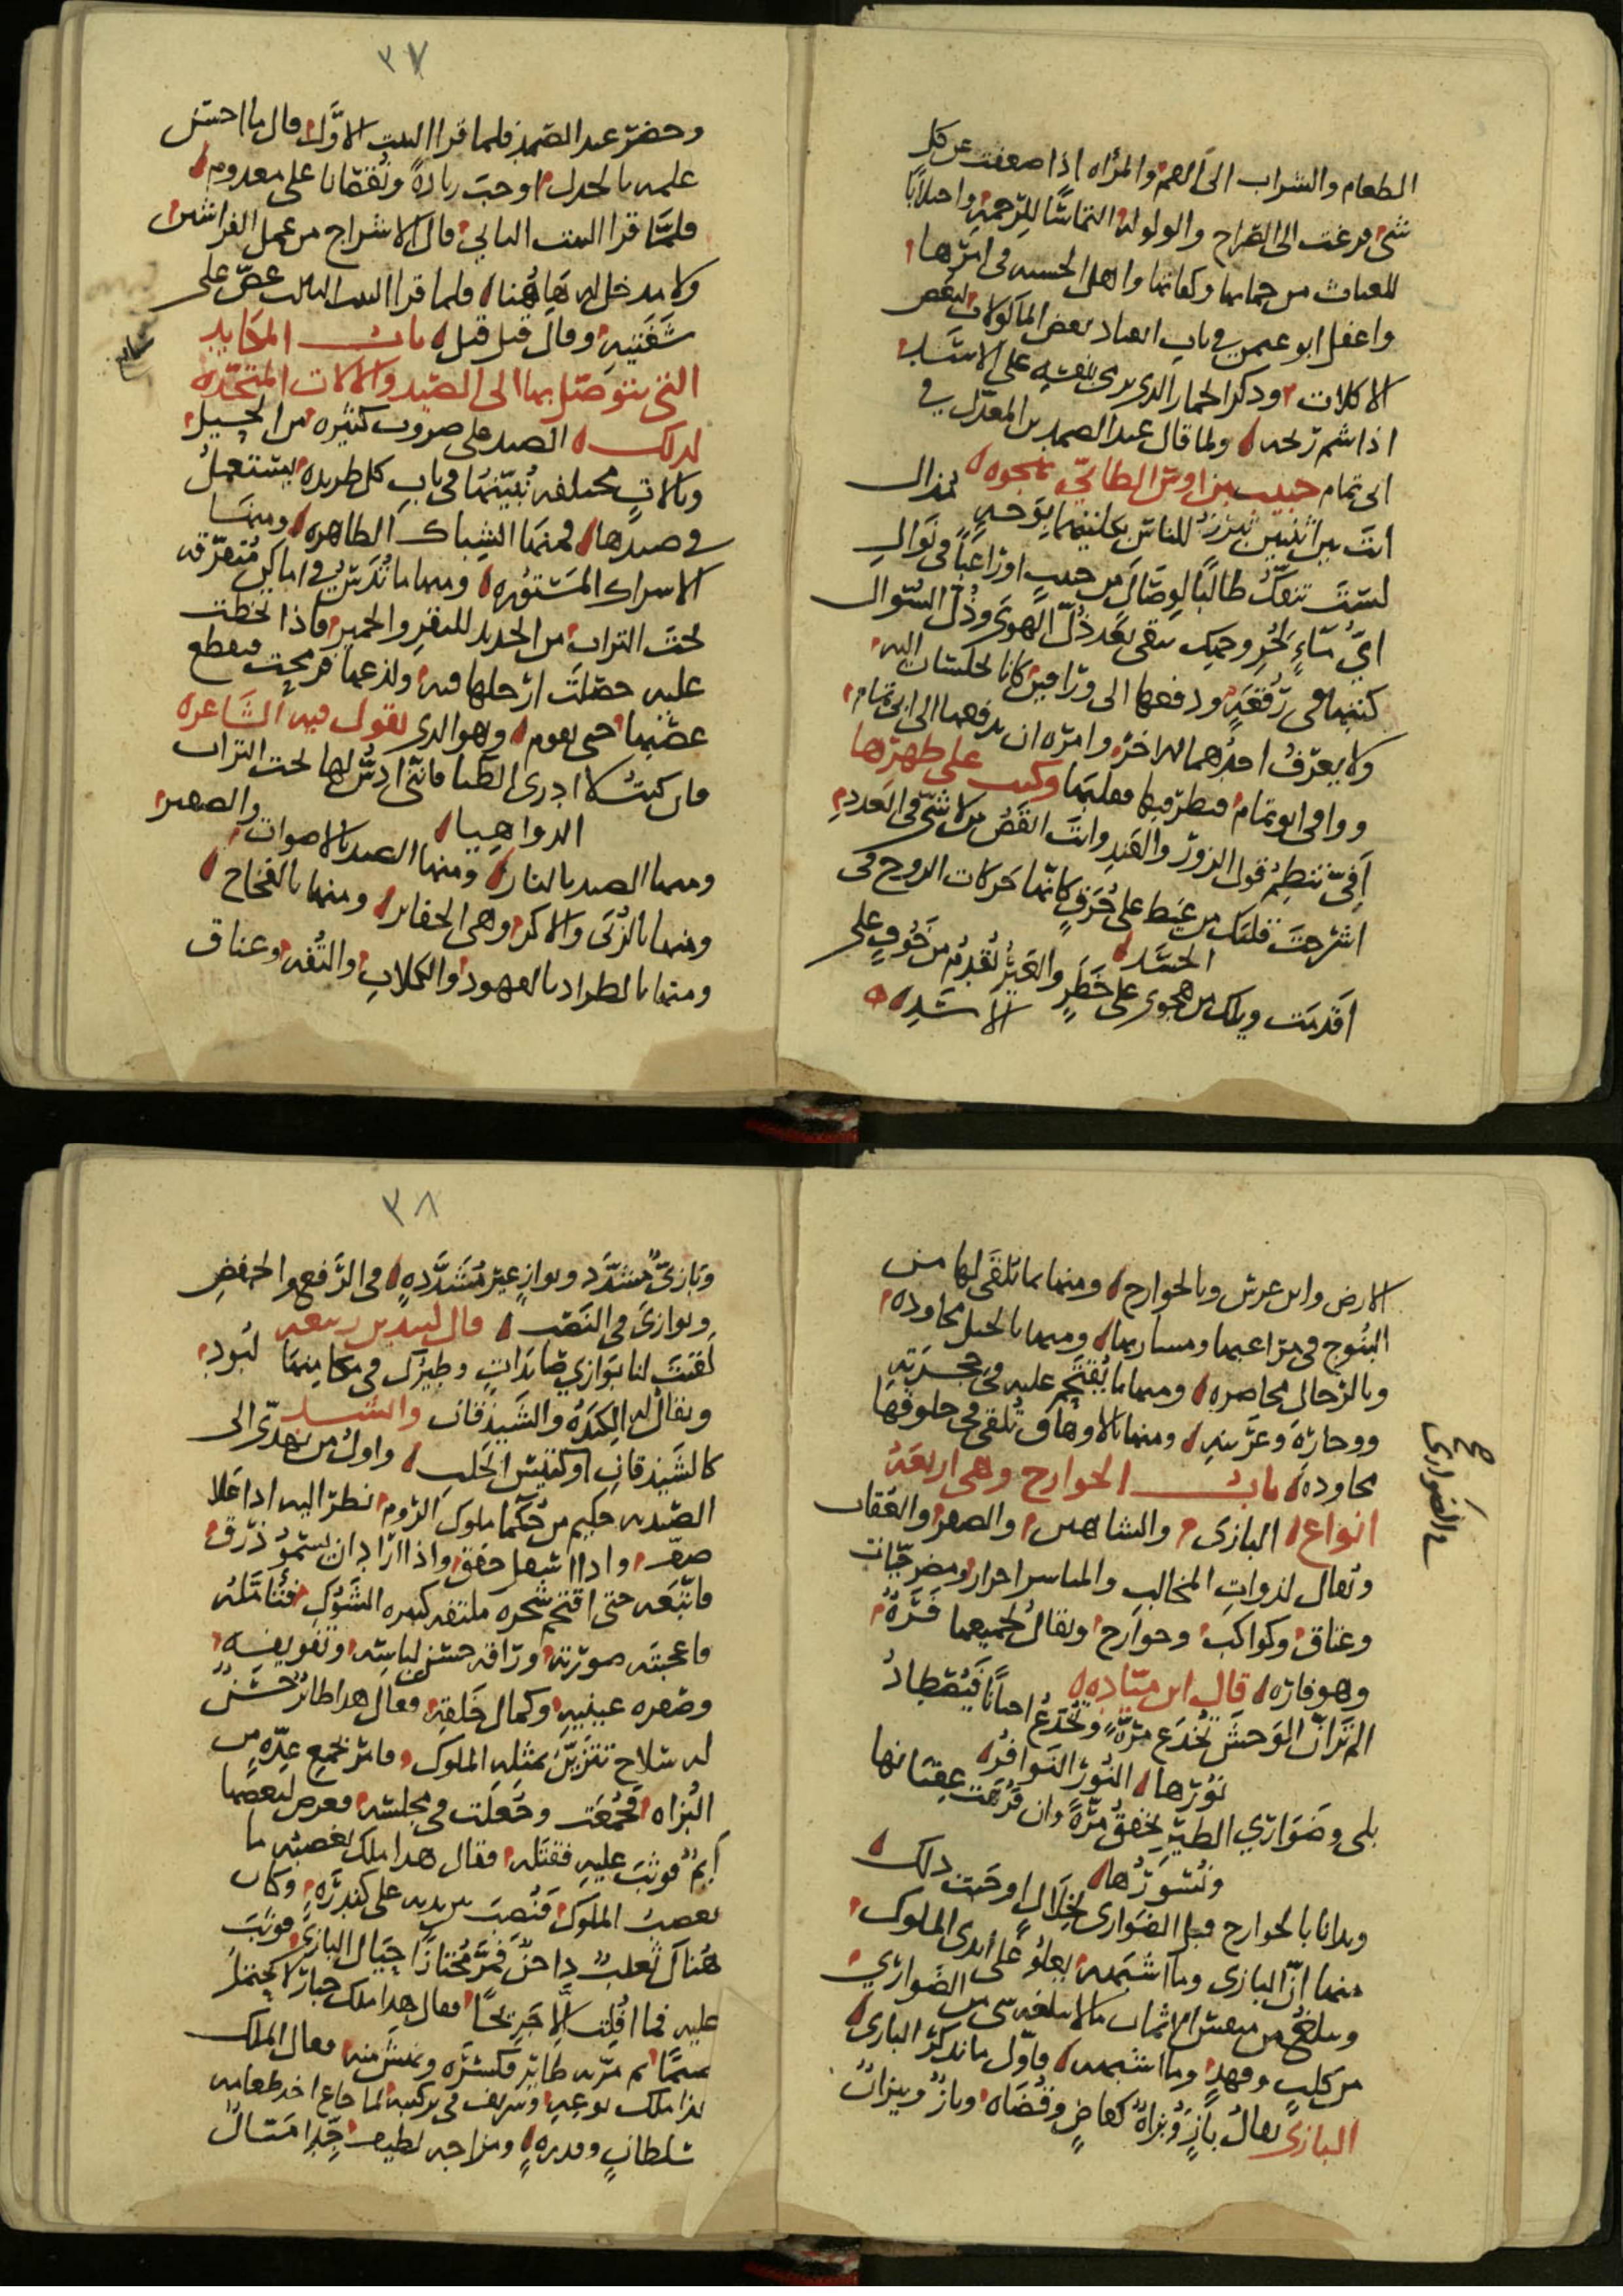 الطعام والشراب الى الصمت والمرأه اذا ضعفت عن كل
شى فزعت الى الصراخ والولوله التماسًا للرحمة واجتلابًا
للغياث من حماتها وكفاتها واهل الحسبه فى امرها
واغفل ابو عيسى فى باب انقياد بعض المأكولات لبعض
الاكلات وذكر الحمار الذى يرمى بنفسه على الاسد
اذا شم ريحه ولما قال عبد الصمد بن المعذل فى
ابى تمام حبيب بن اوس الطائى يهجوه
انت بين اثنتين تبرز للناس بكلتيهما بوجه مذال
لست تنفك طالبًا لوصال من حبيب او راغبًا فى نوال
اى ماء لحر وجهك يبقى بعد ذل الهوى وذل السؤال
كتبهما فى رقعة ودفعها الى وراقين كانا يجلسان اليه
ولا يعرف احدهما الاخر وامره ان يدفعها الى ابى تمام
ووافى ابو تمام فنظر فيها فقلبها وكتب على ظهرها
أفىّ تنظم قول الزور والفند وانت انقص من لا شى فى العدد
اشرجت قلبك من غيظ على حرق كانها حركات الروح فى
الجسد
أقدمت ويلك من هجوى على خطر والعير يقدم من خوف على
الاسد
٣٧
وحضر عبد الصمد فلما قرا البيت الاوّل قال ما احسن
علمه بالجدل اوجب زيادة ونقصانا على معدوم
فلما قرا البيت الثانى قال الاشراج من عمل الفراشين
ولا مدخل له هاهنا فلما قرا البيت الثالث عض على
شفتيه وقال قتل قتل باب المكايد
التى يتوصل بها الى الصيد والالات المتخذه
لذلك الصيد على ضروب كثيره من الحيل
وبالات مختلفه نبينها فى باب كل طريده يستعمل
فى صيدها فمنها الشباك الظاهره ومنها
الاشراك المستوره ومنها ما يدس فى اماكن متفرقه
تحت التراب من الحديد للبقر والحمير فاذا تخطت
عليه حصلت ارجلها فيه ولذعها فرمحت فيقطع
عصبها حتى تقوم وهو الذى يقول فيه الشاعر
فان كنت لا ادرى الظبا فاننى ادس لها تحت التراب
الدواهيا
ومنها الصيد بالنار ومنها الصيد بالاصوات والصفير
ومنها بالزبى والاكر وهى الحفاير ومنها بالفخاخ
ومنها بالطراد بالفهود والكلاب والتفه وعناق
الارض وابن عرس وبالجوارح ومنها بما تلقى لها من
البنوج فى مراعيها ومساربها ومنها بالخيل مجاوده
وبالرجال محاصره ومنها ما يقتحم عليه فى جحرته
ووجاره وعرينه ومنها بالاوهاق تلقى فى حلوقها
مجاوده باب الجوارح وهى اربعة
انواع البازى والشاهين والصقر والعقاب
ويقال لذوات المخالب والمناسر احرار ومضرحيات
وعتاق وكواكب وجوارح ويقال لجميعها فرّة
وهو فاره قال ابن ميّاده
الم تر ان الوحش تخدع مرّة وتخدع احيانا فيصطاد
نورها النور النوافر
بلى وضوارى الطير تخفق مرّة وان فرهت عقبانها
ونسورها
وبدانا بالجوارح قبل الضوارى لخلال اوجبت ذلك
منها انّ البازى وما اشبهه يعلو على ايدى الملوك
ويبلغ من نفيس الاثمان ما لا يبلغه شى من الضوارى
من كلب وفهد وما اشبهه فاوّل ما نذكر البازى
البازى يقال بازٍ وبزاةٌ كقاضٍ وقضاه وبازٌ وبيزان
٣٨
وبازىّ مشدّد وبوازٍ غير مشدّدةٍ فى الرفع والخفض
وبوازىَ فى النصب قال لبيد بن ربيعه
لقيت لنا بوازى صائدات وطيرك فى مكامنها لبود
ويقال له الكندره والشيذقان وانشد
كالشيذقان او كتيس الحلب واول من تهدّى الى
الصيد به حكيم من حكما ملوك الروم نظر اليه اذا علا
صفّ واذا اسفل خفق واذا اراد ان يسمو ذرق
فاتبعه حتى اقتحم شجره ملتفه كثيره الشوك فتأمّله
فاعجبته صورته وراقه حسن لباسه وتفويفه
وصفره عينيه وكمال خلقه فقال هذا طائر حسن
له سلاح تتزيّن بمثله الملوك فامر بجمع عدّه من
البزاه فجمعت وجعلت فى مجلسه فعرض لبعضها
أيم فوثب عليه فقتله فقال هذا ملك يغضبه ما
يغضب الملوك فنصب بين يديه على كندره وكان
هناك ثعلب داجن فمرّ مجتازًا حيال البازى فوثب
عليه فما افلت الا جريحًا فقال هذا ملك جبار لا يحتمل
ضيمًا ثم مرّ به طائر فكسره ونهش منه فقال الملك
سلطان وقدره ومزاجه لطيف جدا مثال